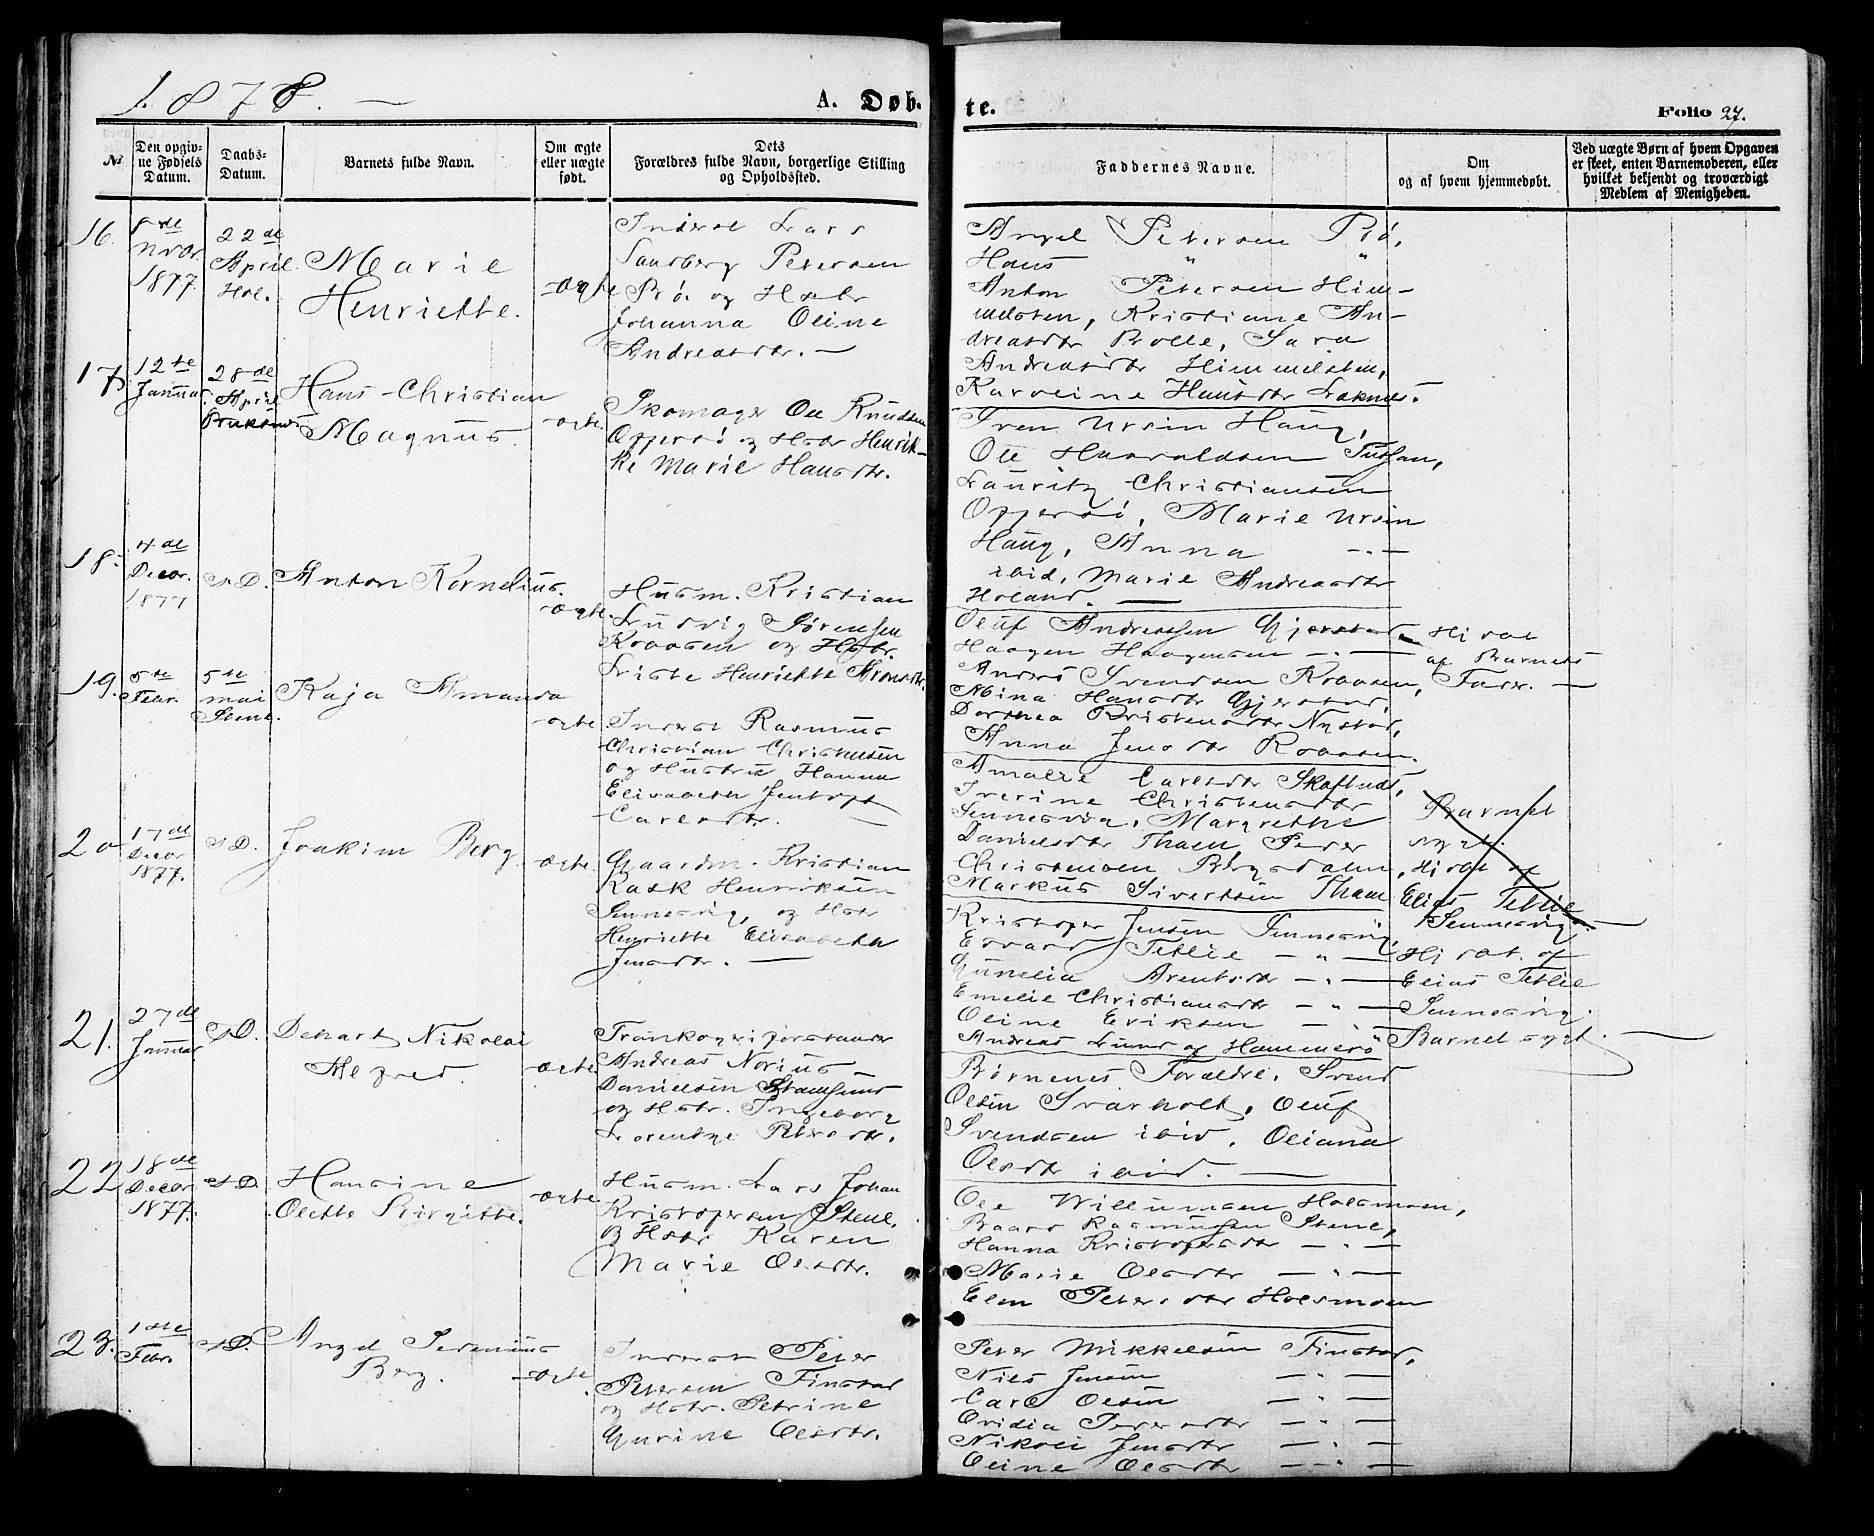 1878. —
A. Døb-
te.
Folio 27.
№
Den opgiv-
ne Fødsels
Datum.
Daabs-
Datum.
Barnets fulde Navn.
Om ægte
eller uægte
født.
Dets
Forældres fulde Navn, borgerlige Stilling
og Opholdssted.
Faddernes Navne.
Om
og af hvem hjemmedøbt.
Ved uægte Børn af hvem Opgaven
er skeet, enten Barnemoderen, eller
hvilket bekjendt og troværdigt
Medlem af Menigheden.
16.
8de
Novbr
1877.
22de
April
Hol.
Marie
Henriette.
ægte
Inderst Lars
Petersen
Bø og Hstr
Johanna Oline
Andreasdtr. —
Angel Petersen Bø,
Hans " "
Anton Petersen Him-
melsten, Kristiane An-
dreasdtr Bolle, Sara
Andreasdtr Himmelsten,
Karoline Hansdtr Laknes.
17
12te
Januar
28de
April
Buksnæs
Hans Christian
Magnus.
ægte.
Skomager Ole Knudsen
Oppersø og Hstr Henrik-
ke Marie Hansdtr.
Iven Ursin Haug,
Ole Haavaldsen
Lauritz Christiansen
Oppersø, Marie Ursin
Haug, Anna — " —
ibid, Marie Andreasdtr
Holand. —
18.
4de
Decbr.
1877
s. D.
Anton Kornelius.
ægte.
Husm. Kristian
Ludvig Sørensen
Kraasen og Hstr.
Lriste Henriette Aronsdtr.
Oluf Andreassen Gjerstad
Haagen Haagensen — " —
Anders Svendsen Kraasen,
Albina Hansdtr Gjerstad,
Dorthea Kristensdtr Nystad,
Anna Jensdtr Kraasen.
Hj døbt
af Barnets
Fader. —
19.
5te
Febr.
5te
Mai
Stene.
Kaja Amanda
ægte
Inderst Rasmus
Christian Christensen
og Hustru Hanna
Elisabeth Jentoft
Carlsdtr.
Amalie Carlsdtr Skaftnes,
Iverine Christensdtr
Sennesvig, Margrethe
Danielsdtr Thaen, Peder
Christensen Bergsdalen,
Markus Sivertsen Thaen
Barnet
sygt.
Hj døbt af
Elias Tetlie
Sennesvig. —
20
17de
Decbr
1877.
s. D.
Joakim Berg.
ægte.
Gaardm. Kristian
Rask Henriksen
Sennesvig, og Hstr
Henriette Elisabeth
Jensdtr. —
Kristofer Jensen Sennesvig,
Edvard Tetlie — " —
Gunelia Arentsdtr — " —
Emelie Christiansdtr — " —
Oline Eriksen — " —
Andreas Lund og Hammerø
Hj døbt. af
Elias Tetlie
Sennesvig.
Barnet sygt. —
21.
27de
Januar
s. D.
Dehart Nikolai
Alfred.
ægte.
Trankogeriforstander
Andreas Norius
Danielsen Stamsund
og Hstr. Ingeborg
Lorentze Petersdtr.
Børnenes Forældre, Svend
Olsen Svarholt, Oluf
Svendsen ibid. Oliana
Olsdtr ibid. —
22
18de
Decbr
1877.
s. D.
Hansine
Olette Birgitte.
ægte
Husm. Lars Johan
Kristofersen Stene.
og Hstr Karen
Marie Olsdtr.
Ole Willumsen Holsmoen,
Baard Rasmussen Stene,
Hanna Kristofersdtr — " —
Marie Olsdtr — " —
Elen Petersdtr Holsmoen
23.
Febr.
s. D.
Angel Serenius
Berg.
ægte
Inderst Peter
Petersen Finstad
og Hstr. Petrine
Gurine Olsdtr.
Peter Mikkelsen Finstad,
Nils Jensen — " —
Carl Olsen — " —
Ovidia Pedersdtr — " —
Nikoli Jensdtr — " —
Oline Olsdtr — " —